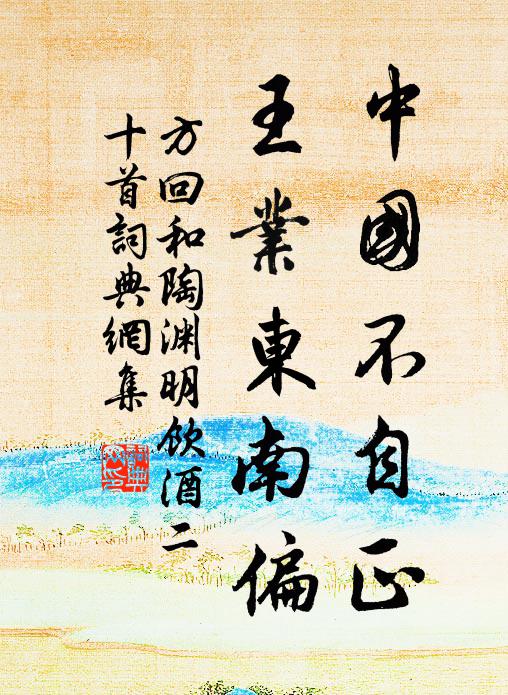 中國不自正
王業東南偏
方回和陶渊明飲酒二
十首詞典網集